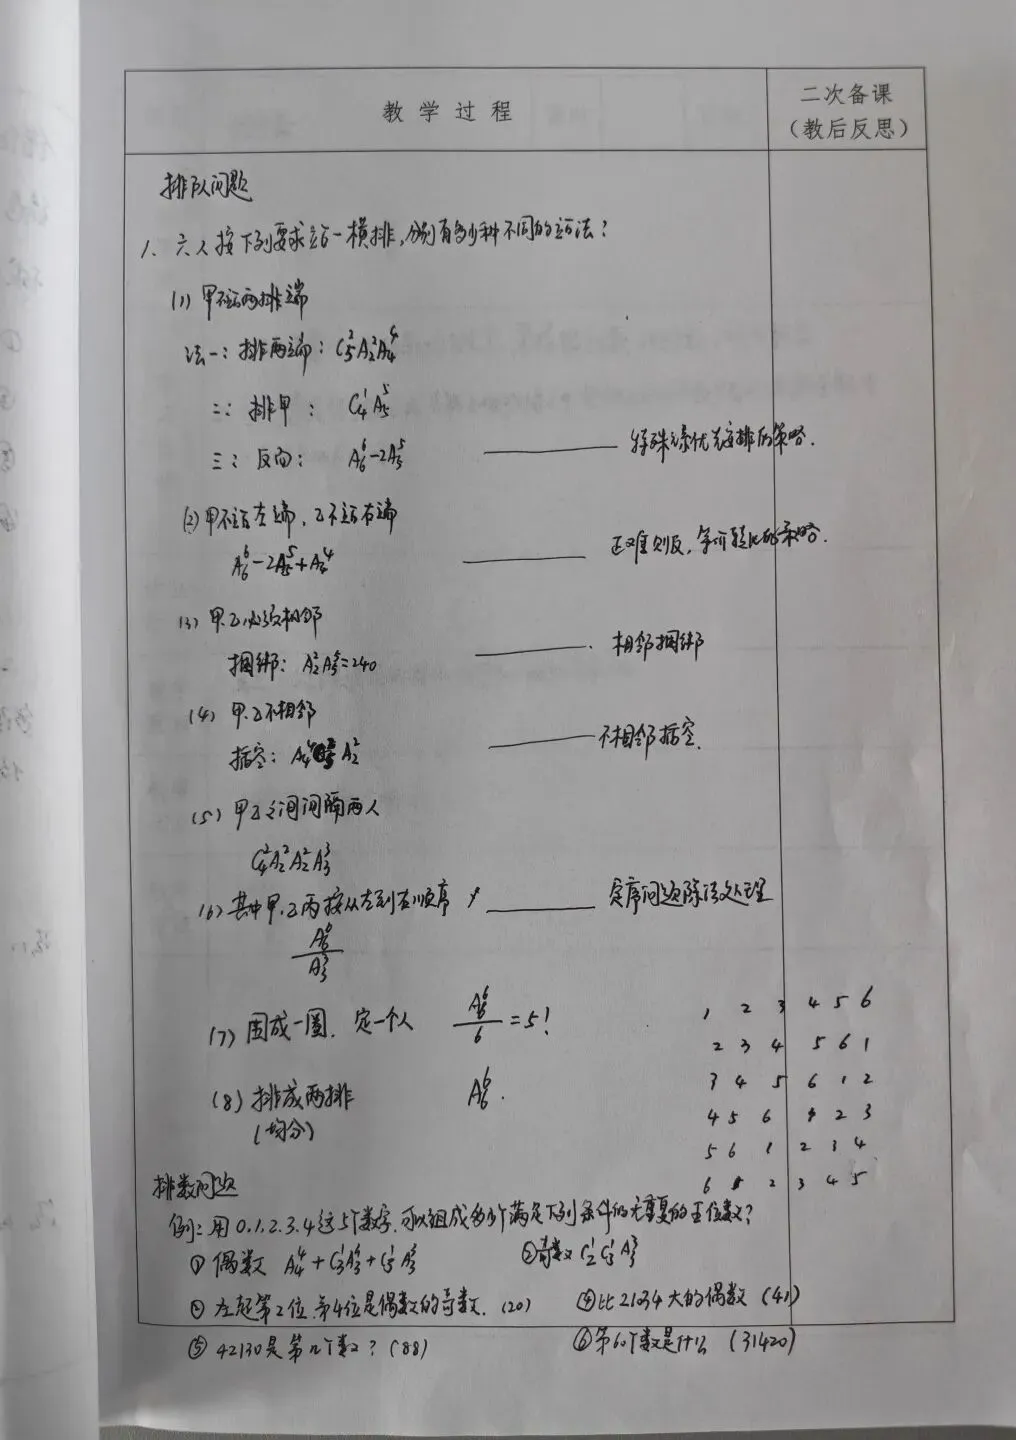 教学过程
二次备课
(教后反思)
排队问题
1. 六人按下列要求站一横排,分别有多少种不同的站法?
(1) 甲不站两排端
法一: 排两端: C₅²A₂²A₄⁴
二: 排甲: C₄¹A₅⁵
三: 反向: A₆⁶-2A₅⁵ —— 特殊元素优先安排的策略.
(2) 甲不站左端,乙不站右端
A₆⁶-2A₅⁵+A₄⁴ —— 正难则反,等价转化的策略.
(3) 甲.乙必须相邻
捆绑: A₂²A₅⁵=240 —— 相邻捆绑
(4) 甲.乙不相邻
插空: A₄⁴ A₂² —— 不相邻插空.
(5) 甲乙之间间隔两人
C₄²A₂²A₂²A₃³
(6) 其中甲.乙丙按从左到右顺序 —— 定序问题除法处理
A₆⁶/A₃³
(7) 围成一圈. 定一个人 A₆⁶/6 = 5!
(8) 排成两排 A₆⁶.
(均分)
1 2 3 4 5 6
2 3 4 5 6 1
3 4 5 6 1 2
4 5 6 1 2 3
5 6 1 2 3 4
6 1 2 3 4 5
排数问题
例: 用0.1.2.3.4这5个数字,可以组成多少个满足下列条件的无重复的五位数?
① 偶数 A₄⁴+C₃¹A₃³+C₃¹A₃³ ② 奇数 C₂¹C₃¹A₃³
③ 左起第2位.第4位是偶数的奇数. (20) ④ 比21034大的偶数 (41)
⑤ 42130是第几个数? (88) ⑥ 第60个数是什么 (31420)